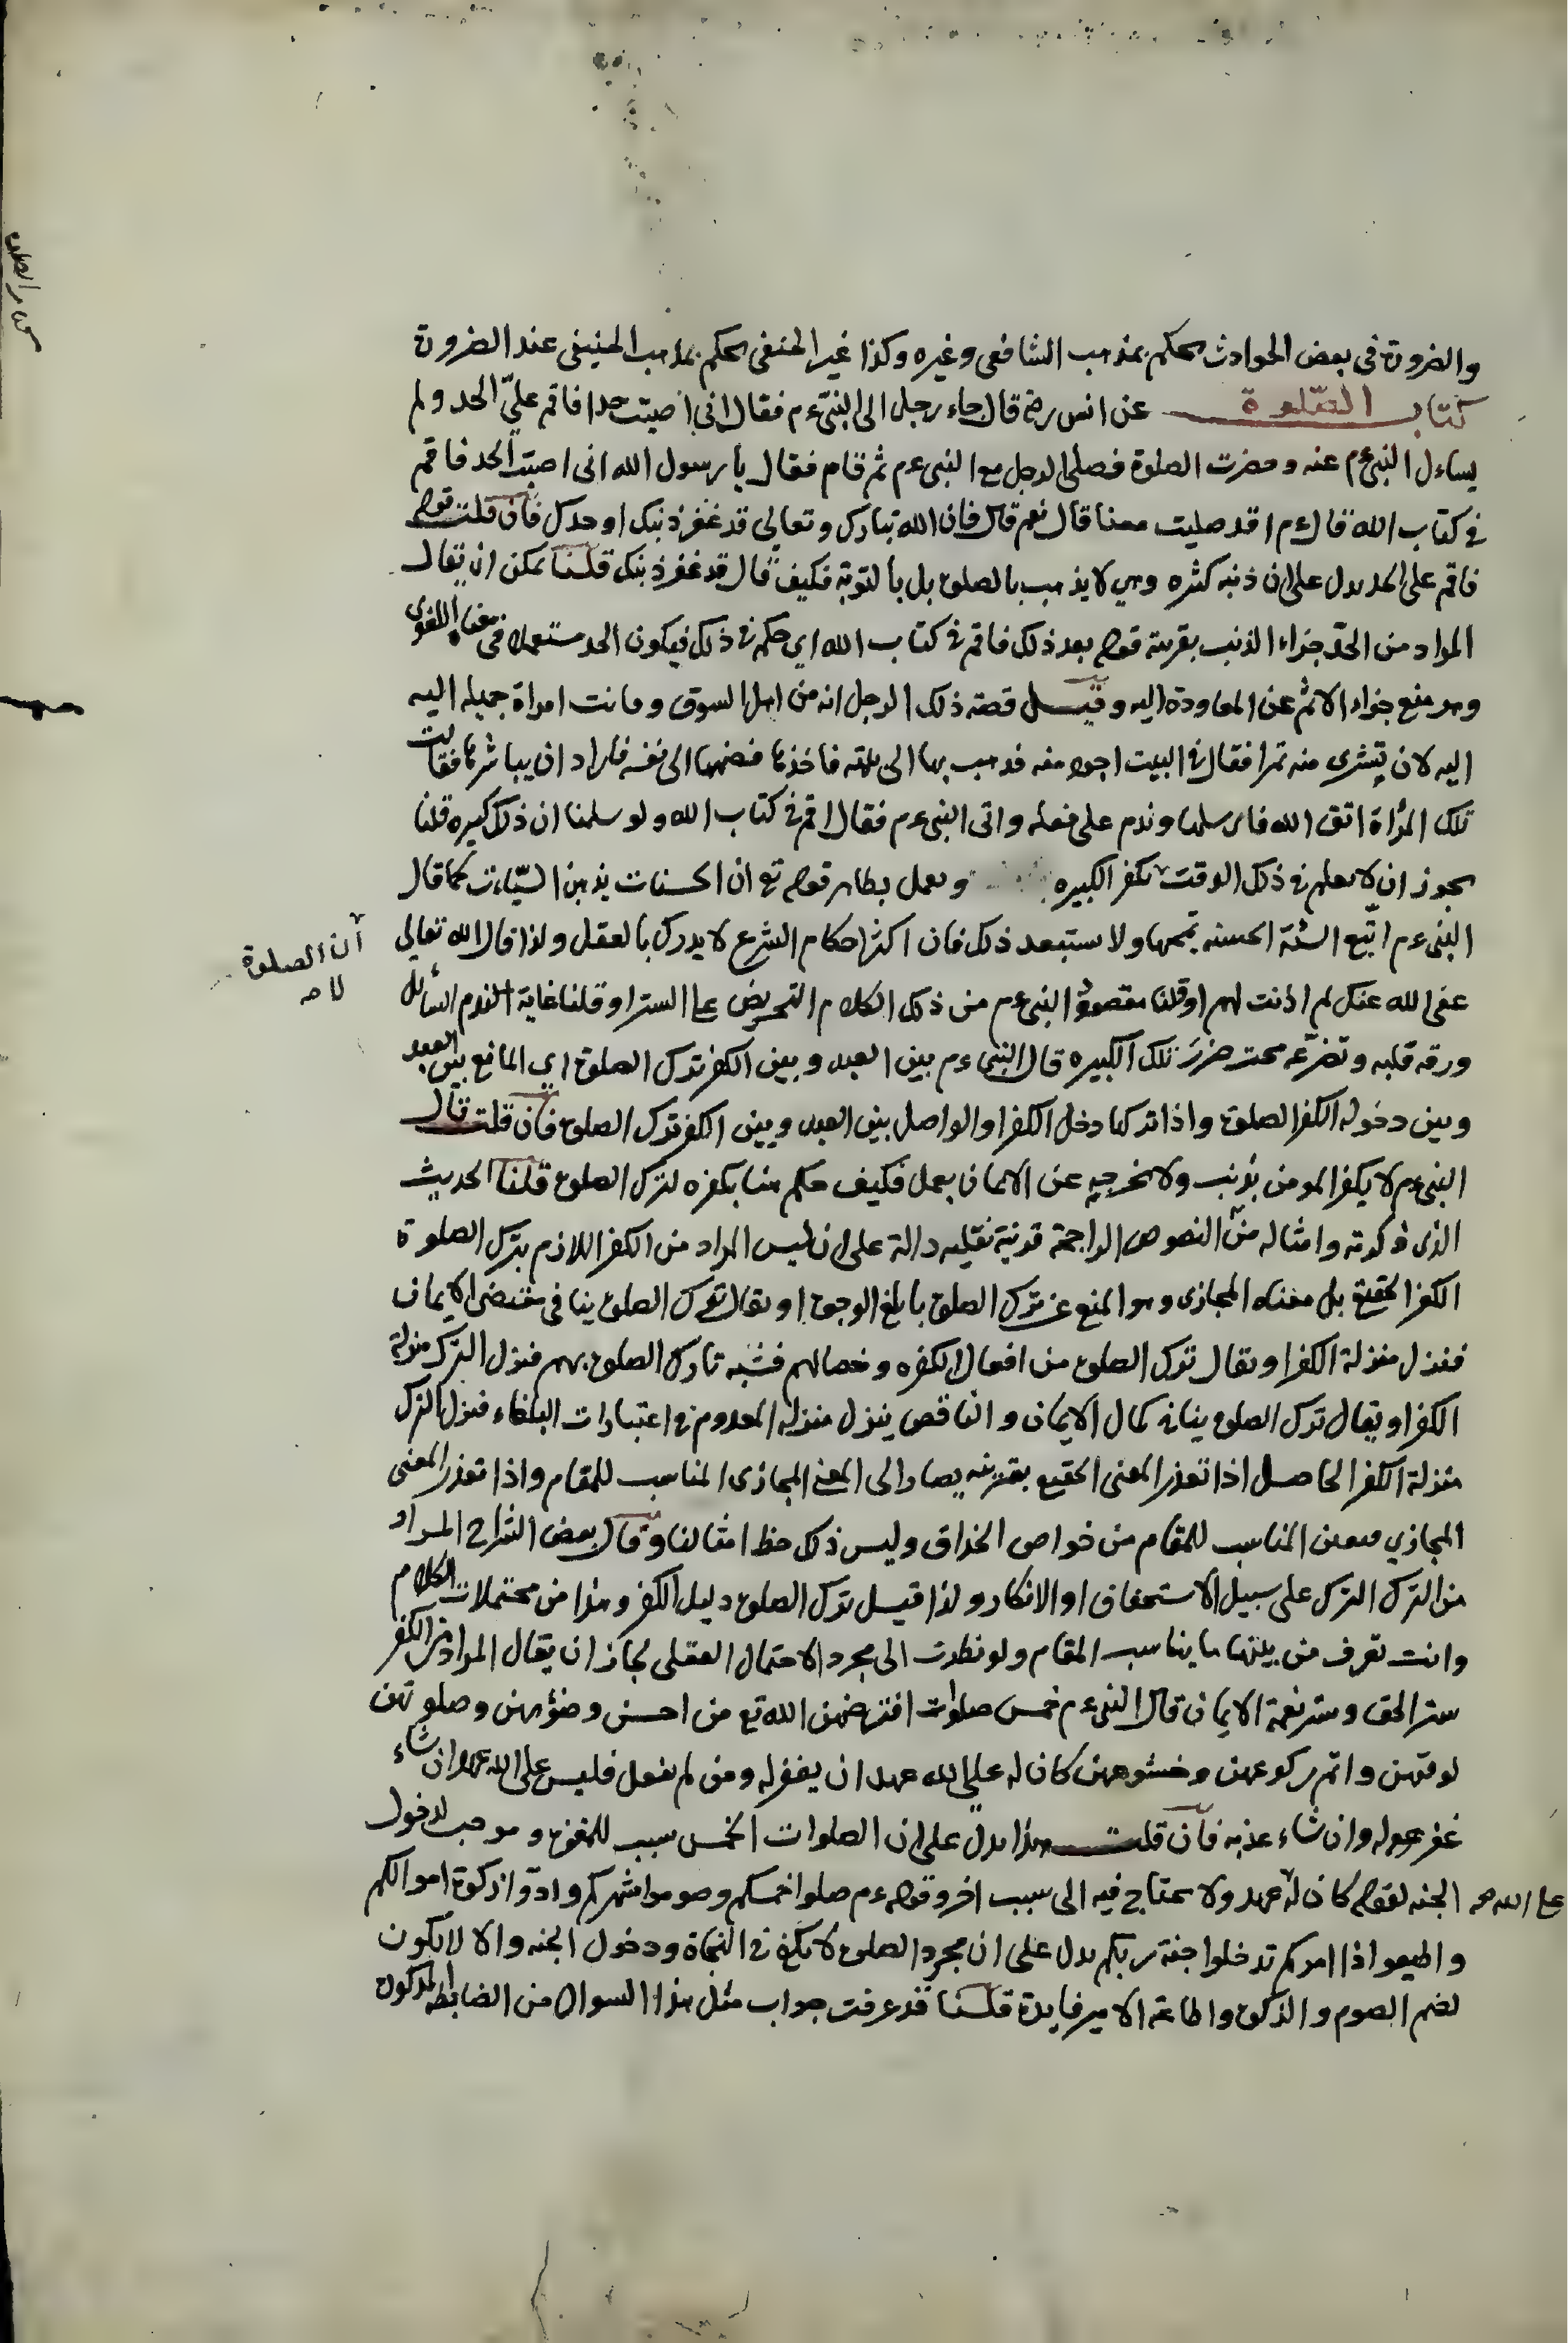 والضرورة فى بعض الحوادث يحكم بمذهب الشافعى وغيره وكذا غير الحنفى يحكم بمذهب الحنيفى عند الضرورة
كتاب الصّلوة عن انس رضى قال جاء رجل الى النبىّ عم فقال انى اصبت حدا فاقم علىّ الحد ولم
يساءل النبى عم عنه وحضرت الصلوة فصلى الرجل مع النبى عم ثم قام فقال يا رسول الله انى اصبت الحد فاقم
فى كتاب الله قال عم اقد صليت معنا قال نعم قال فان الله تبارك وتعالى قد غفر ذنبك او حدك فان قلت قوله
فاقم على الحد يدل على ان ذنبه كثره وهى لا يذهب بالصلوة بل بالتوبة فكيف قال قد غفر ذنبك قلنا يمكن ان يقال
المراد من الحدّ جزاء الذنب بقرينة قوله بعد ذلك فاقم فى كتاب الله اى حكم فى ذلك فيكون الحد مستعملا فى معناه اللغوى
وهو منع جزاء الاثم عن المعاودة اليه وقيل قصة ذلك الرجل انه من اهل السوق وجانت امراة جميله اليه
اليه لان تشرى منه تمرا فقال فى البيت اجود منه فذهب بها الى بيته فاخذها فضمها الى نفسه فاراد ان يباشرها فقالت
تلك المرأة اتق الله فارسلها وندم على فعله واتى النبى عم فقال اقم فى كتاب الله ولو سلمنا ان ذلك كبيره قلنا
يجوز ان لا يعلم فى ذلك الوقت تكفر الكبيره ويعمل بظاهر قوله تع ان الحسنات يذهبن السيّاءت كما قال
آن الصلوة
لا صه
النبى عم اتبع السئة الحسنه تمحها ولا يستبعد ذلك فان اكثر احكام الشرع لا يدرك بالعقل ولذا قال الله تعالى
عفى الله عنك لم اذنت لهم او قلنا مقصود النبى عم من ذلك الكلام التحريض على الستر او قلنا غاية الندم السائل
ورقه قلبه وتضرعه محت ضرر تلك الكبيره قال النبى عم بين العبد وبين الكفر ترك الصلوة اى المانع بين العبد
وبين دخوله الكفر الصلوة واذا تركها دخل الكفر او الواصل بين العبد وبين الكفر ترك الصلوة فان قلت قال
النبى عم لا يكفر المومن بذنب ولا تخرجه عن الايمان بعمل فكيف حكم هنا بكفره لترك الصلوة قلنا الحديث
الذى ذكرته وامثاله من النصوص الراجحة قرنية نقليه دالة على ان ليس المراد من الكفر اللازم بترك الصلوة
الكفر الحقيقى بل معناه المجازى وهو المنع عن ترك الصلوة بابلغ الوجوه او يقال ترك الصلوة ينافى مقتضى الايمان
فنزل منزلة الكفر او يقال ترك الصلوة من افعال الكفره وخصالهم فشبه تارك الصلوة بهم فنزل الترك منزلة
الكفر او يقال ترك الصلوة ينافى كمال الايمان والناقص ينزل منزلة المعدوم فى اعتبارات البلغاء فنزل الترك
منزلة الكفر الحاصل اذا تعذر المعنى الحقيقى بقرينه يصار الى المعنى المجازى المناسب للمقام واذا تعذر المعنى
المجازي فتعين المناسب للمقام من خواص الحذاق وليس ذلك حظ امثالنا وقال بعض الشراح المراد
من الترك الترك على سبيل الاستخفاف او الانكار ولذا قيل ترك الصلوة دليل الكفر وهذا من محتملات الكلام
وانت تعرف من بينها ما يناسب المقام ولو نظرت الى مجرد الاحتمال العقلى لجاز ان يقال المراد من الكفر
ستر الحق وستر نعمة الايمان قال النبى عم خمس صلوات افترضهن الله تع من احسن وضؤهن وصلوتهن
لوقتهن واتم ركوعهن وخشوعهن كان له على الله عهد ان يغفر له ومن لم يفعل فليس على الله عهد ان شاء
غفر له وان شاء عذبه فان قلت هذا يدل على ان الصلوات الخمس سبب للمغفرة وموجب لدخول
على الله صه الجنه لقوله كان له عهد ولا يحتاج فيه الى سبب اخر وقوله عم صلوا خمسكم وصوموا شهركم وادّوا زكوة اموالكم
واطيعوا اذا امركم تدخلوا جنة ربكم يدل على ان مجرد الصلوة لا يكفى فى النجاة ودخول الجنه والا لا يكون
لضم الصوم والزكوة واطاعة الامير فايدة قلنا قد عرفت جواب مثل هذا السوال من الضابطه المذكورة